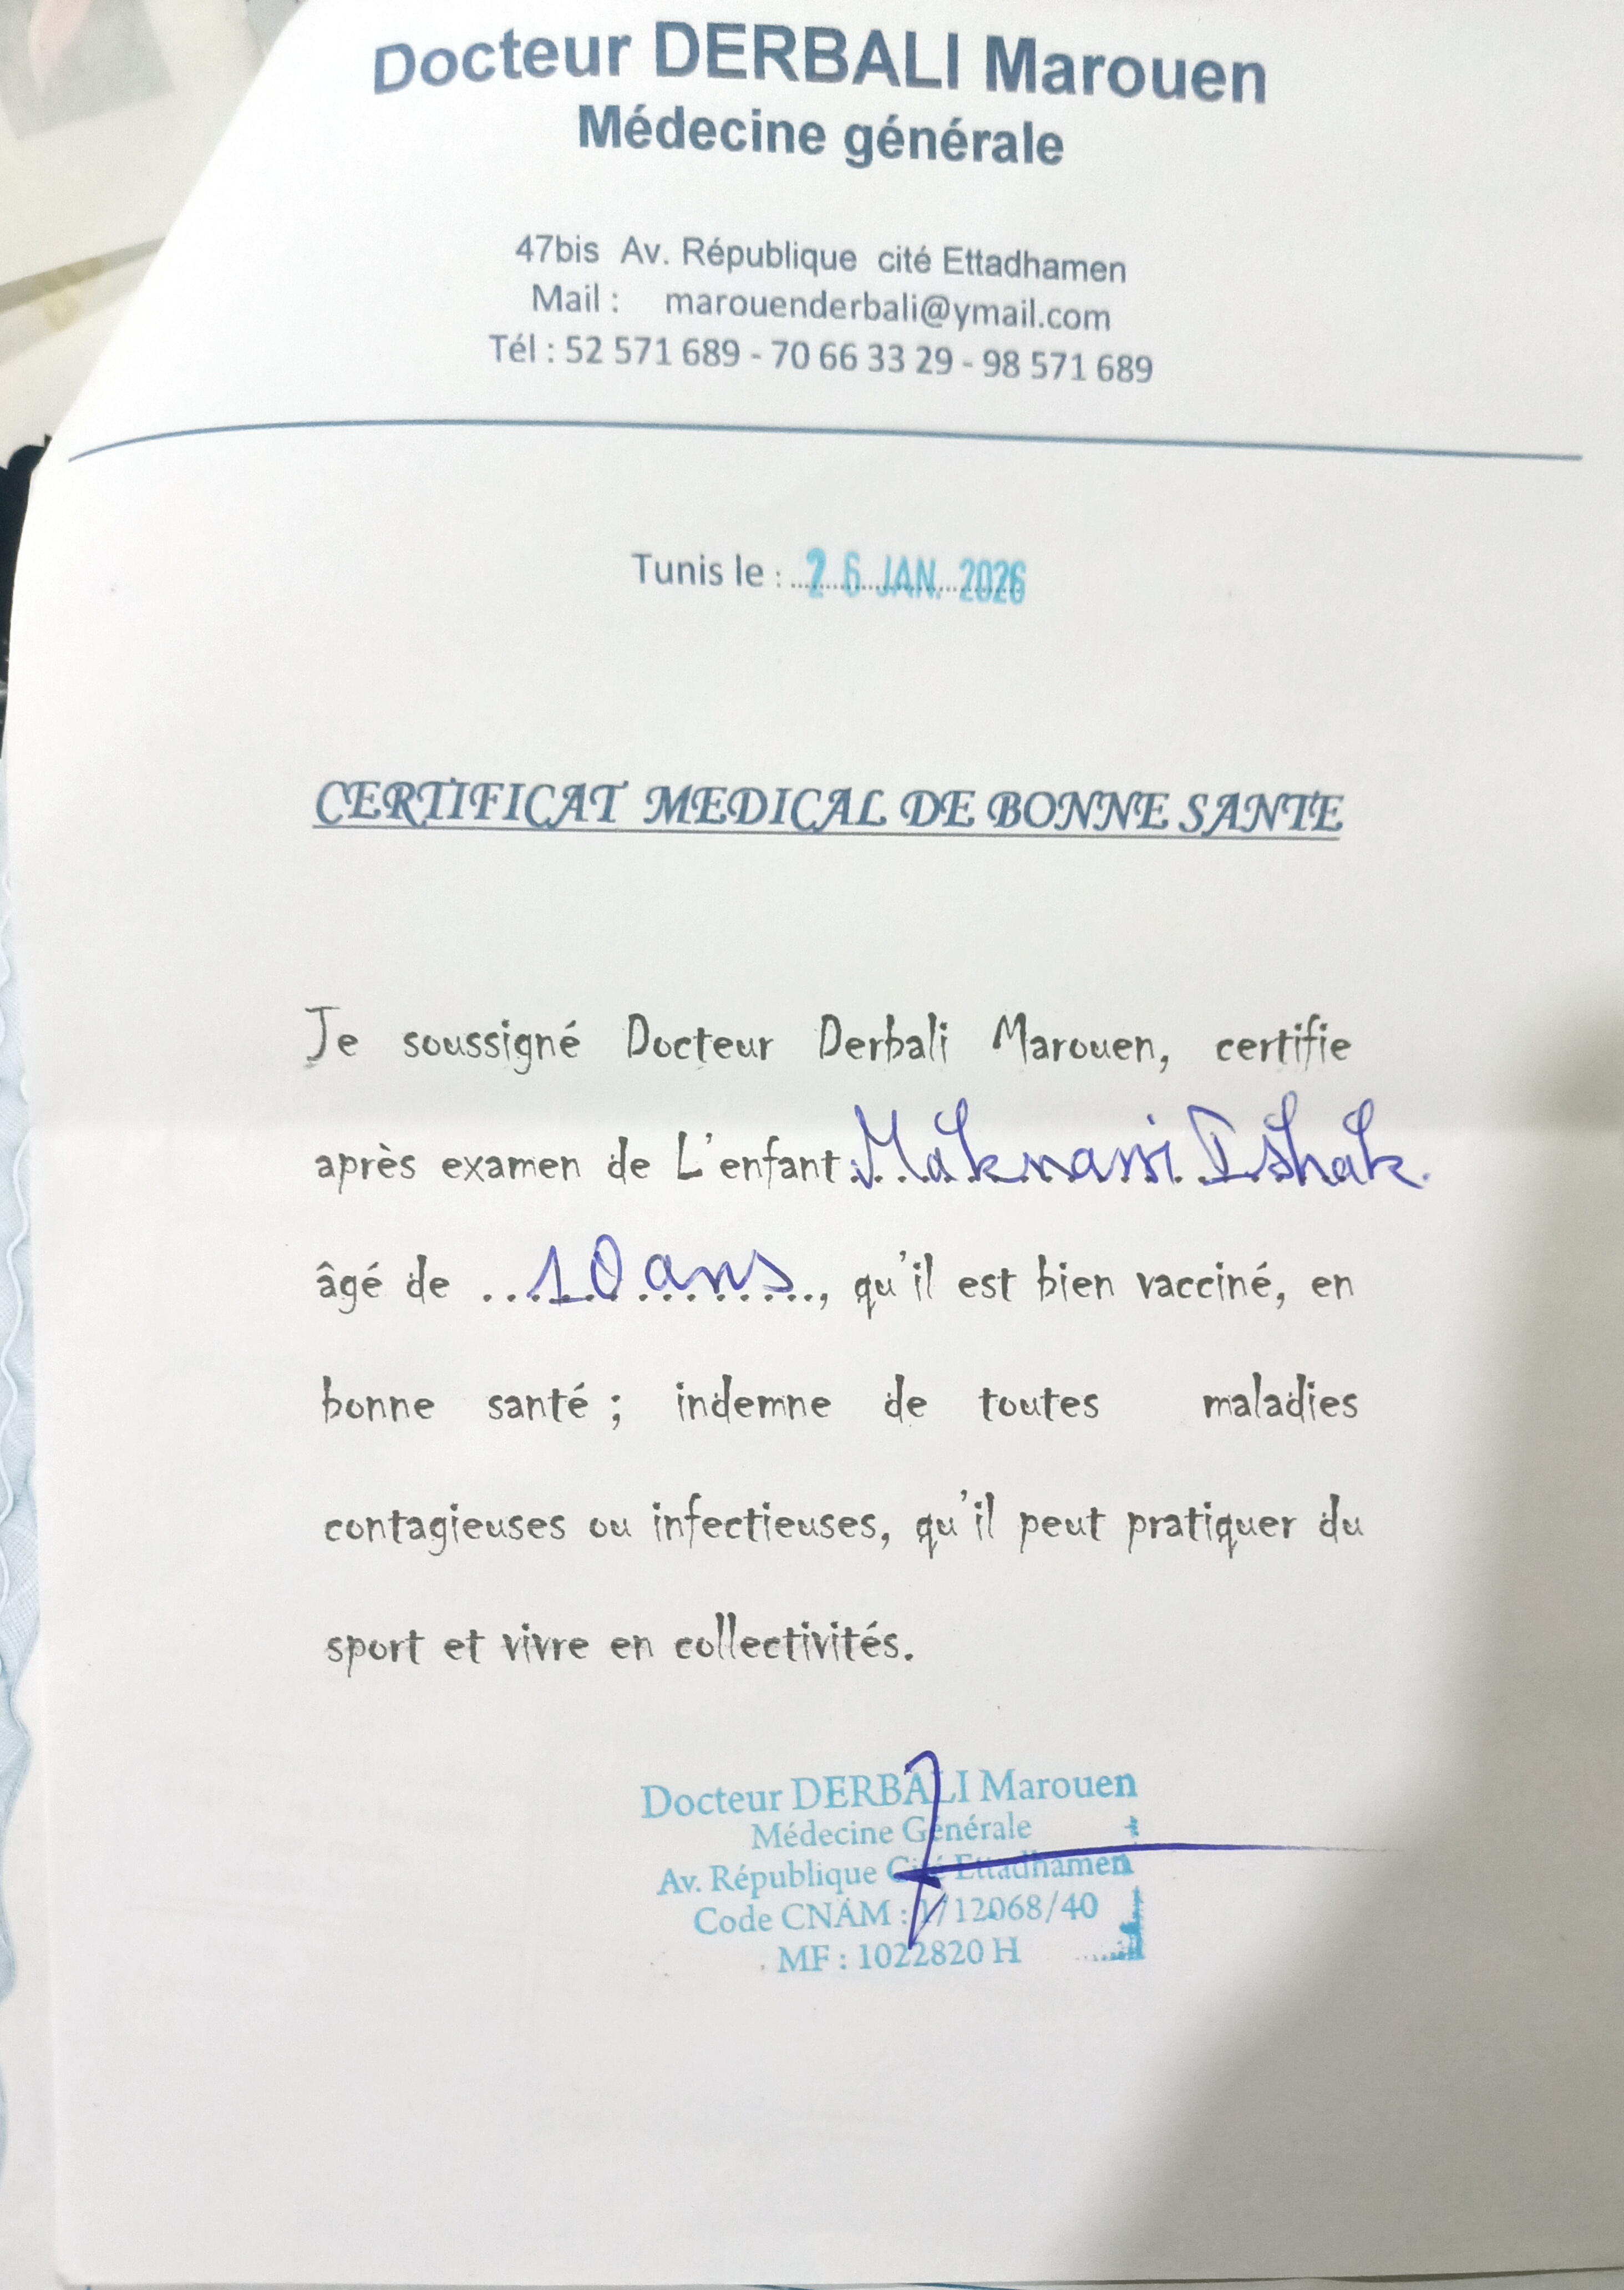 Docteur DERBALI Marouen
Médecine générale
47bis Av. République cité Ettadhamen
Mail : marouenderbali@ymail.com
Tél : 52 571 689 - 70 66 33 29 - 98 571 689
Tunis le : 26 JAN. 2026
CERTIFICAT MEDICAL DE BONNE SANTE
Je soussigné Docteur Derbali Marouen, certifie
après examen de L'enfant Maknassi Ishak.
âgé de ...10 ans..., qu'il est bien vacciné, en
bonne santé ; indemne de toutes maladies
contagieuses ou infectieuses, qu'il peut pratiquer du
sport et vivre en collectivités.
Docteur DERBALI Marouen
Médecine Générale
Av. République Cité Ettadhamen
Code CNAM : 1/12068/40
MF : 1022820 H